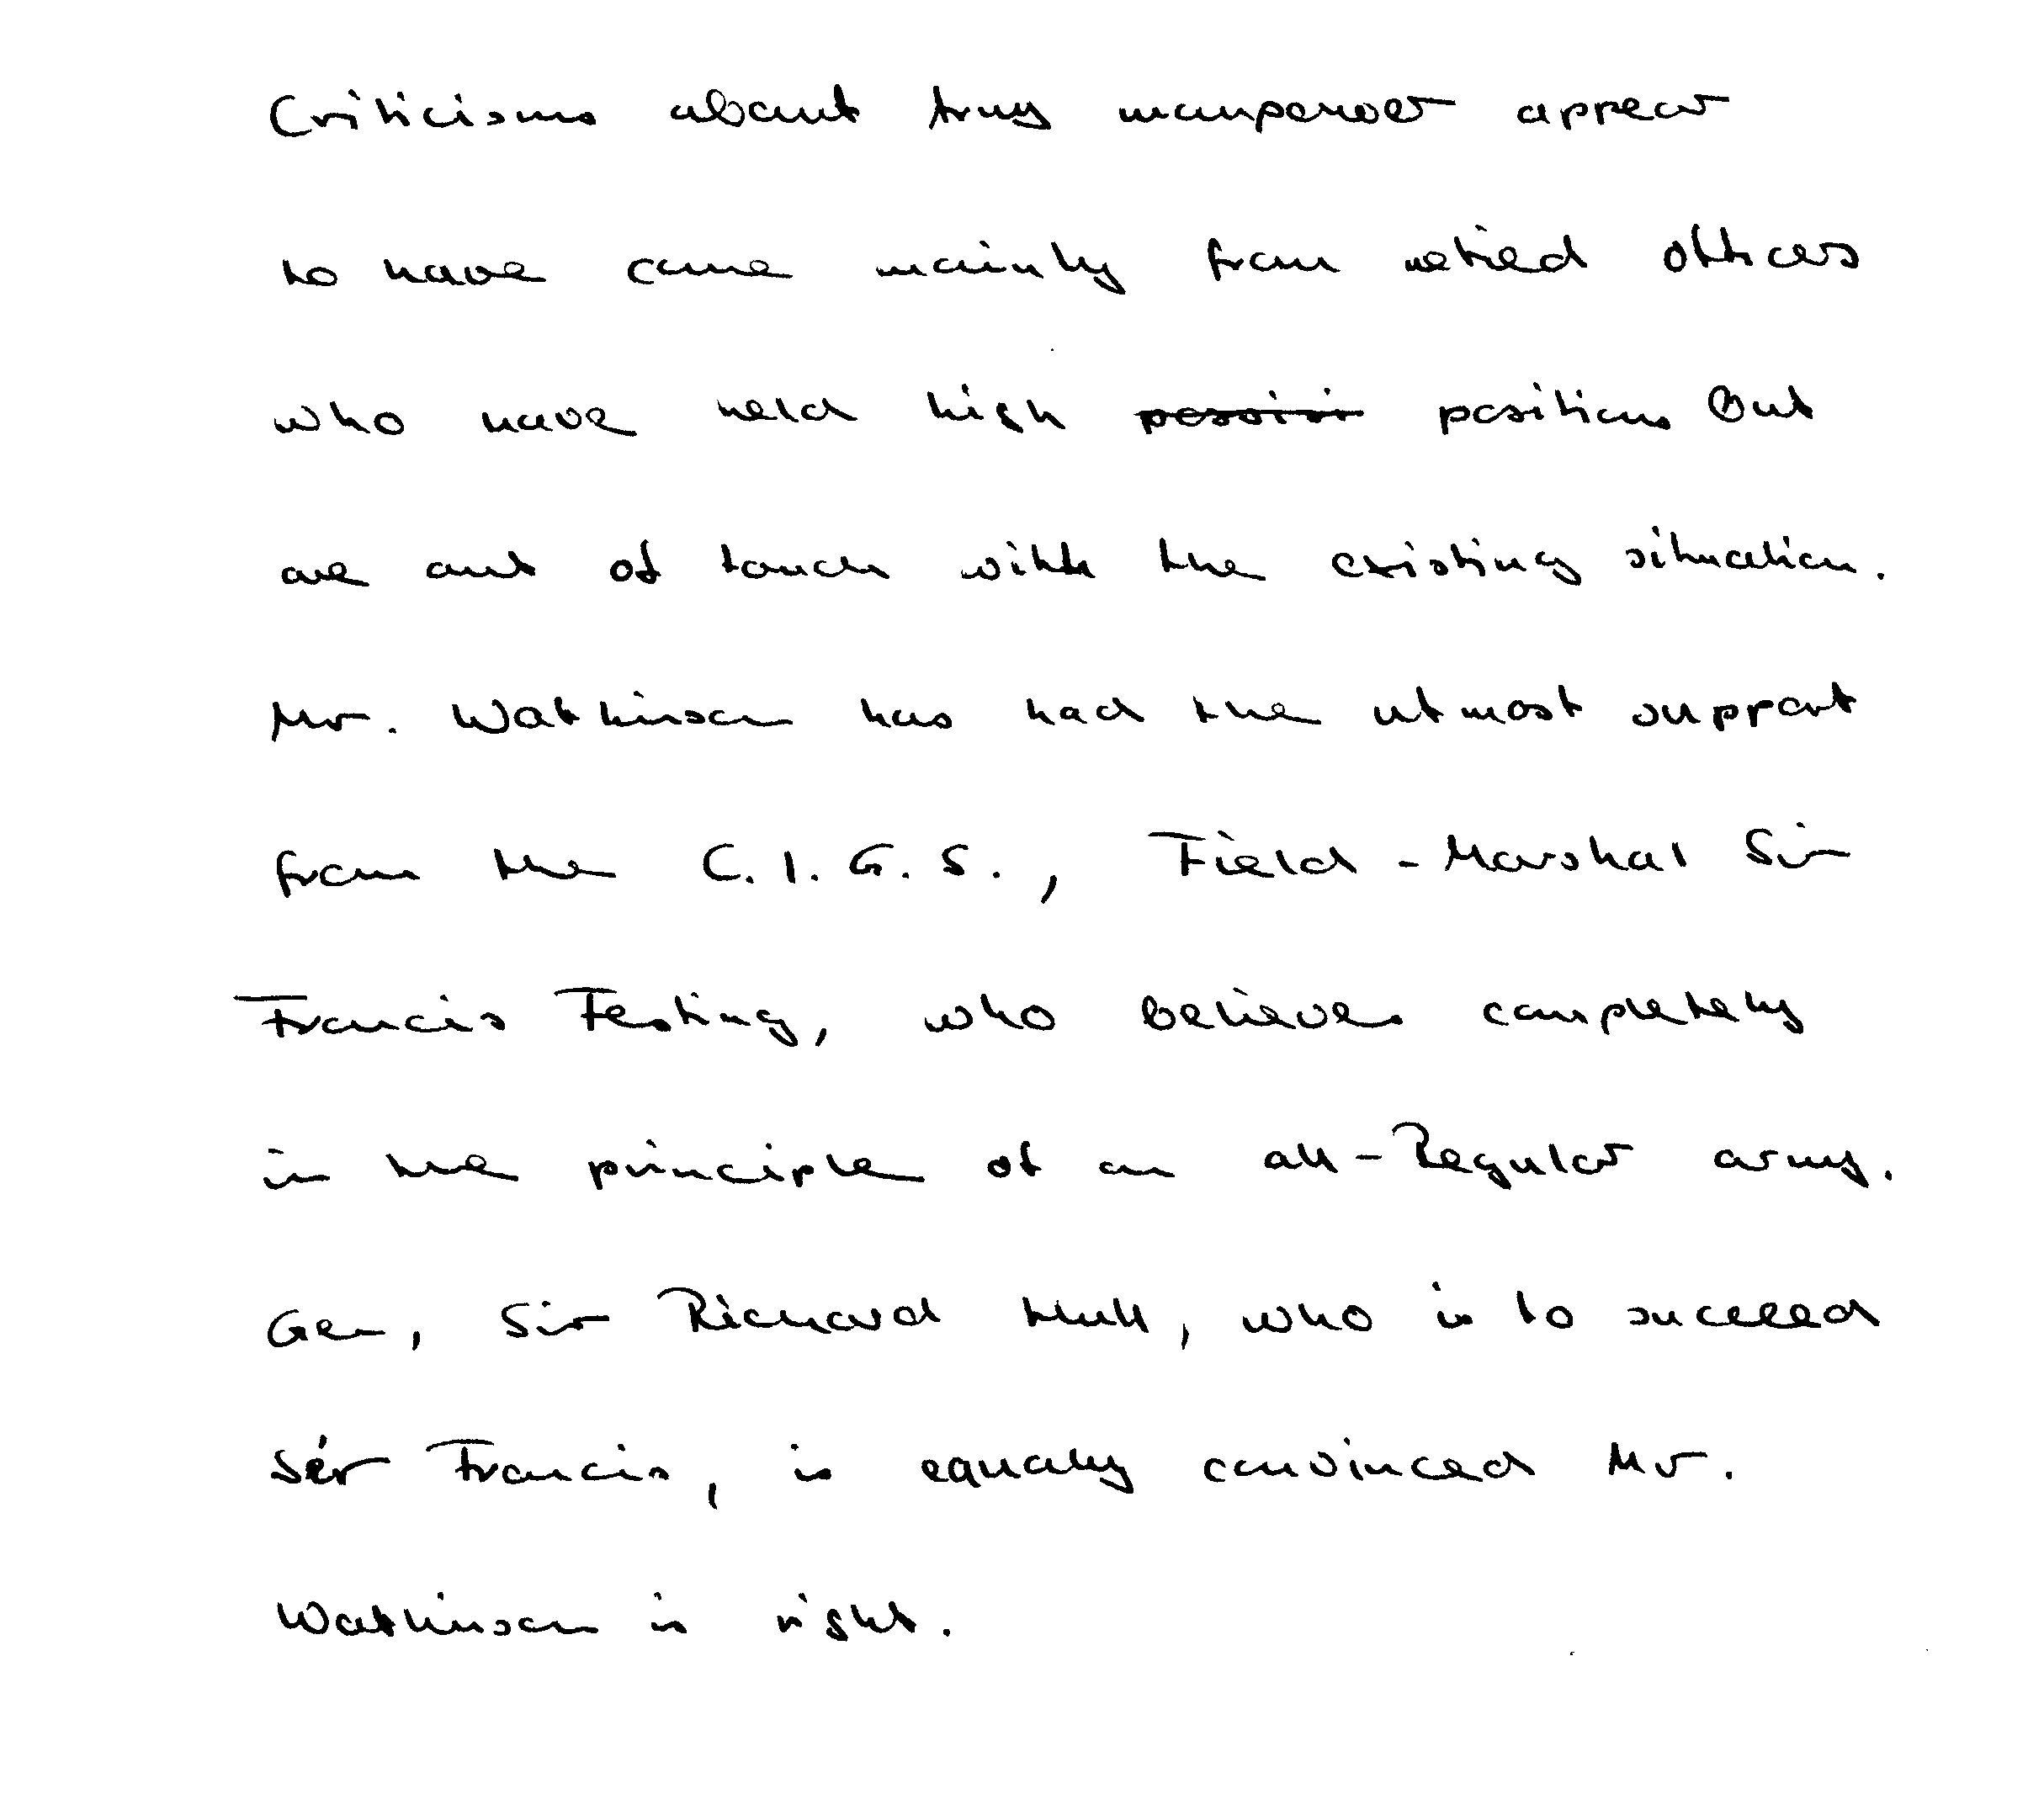 Criticisms about Army manpower appear
to have come mainly from retired officers
who have held high positions but
are out of touch with the existing situation.
Mr. Watkinson has had the utmost support
from the C.I.G.S., Field-Marshal Sir
Francis Festing, who believes completely
in the principle of an all-Regular army.
Gen, Sir Richard Hull, who is to succeed
Sir Francis, is equally convinced Mr.
Watkinson is right.